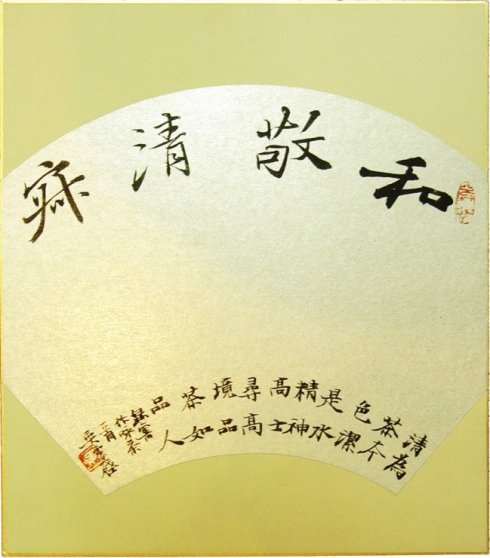 和敬清寂
清為茶本色潔是水精神高士尋高境品茶如品人
錄舊
作咏茶